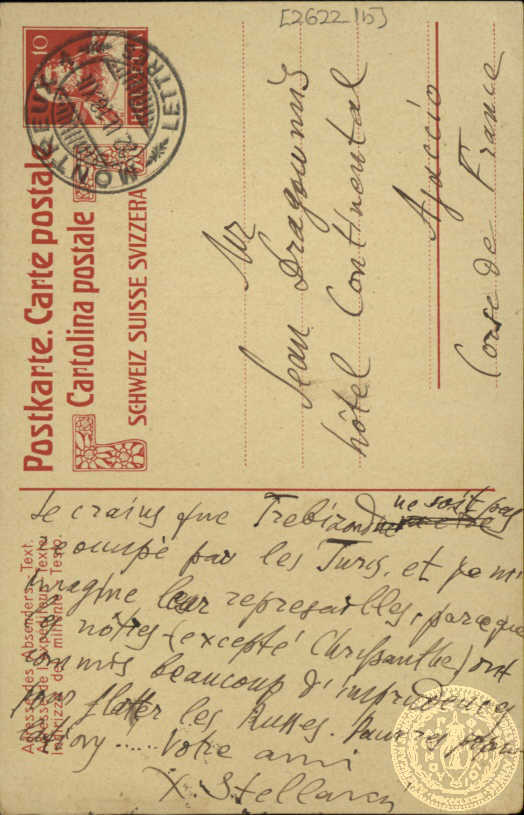 [2622 15]
10
HELVETIA
MONTREUX 1
LETTRES
Postkarte. Carte postale.
Cartolina postale
SCHWEIZ SUISSE SVIZZERA
Mr
Jean Dragoumis
hôtel Continental
Ajaccio
Corse de France
Adresse des Absenders. Text.
Adresse de l'expéditeur. Texte.
Indirizzo del mittente. Testo.
Je crains que Trebizonde ne soit pas
occupé par les Turcs, et je m'i
imagine leur represailles, parceque
les nôtres (excepté Chrysanthe) ont
commis beaucoup d'imprudences
pour flatter les Russes. Pauvres
Votre ami